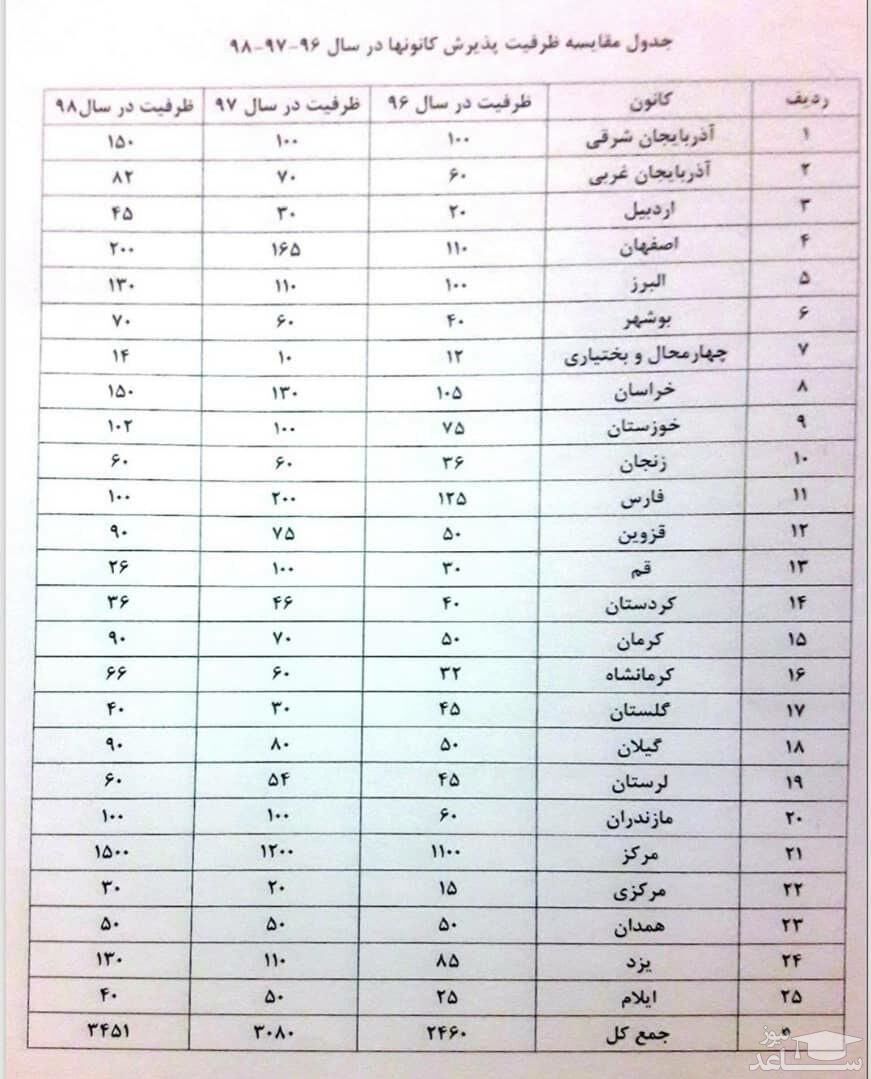 جدول مقایسه ظرفیت پذیرش کانونها در سال ۹۶-۹۷-۹۸
ردیف کانون ظرفیت در سال ۹۶ ظرفیت در سال ۹۷ ظرفیت در سال۹۸
۱ آذربایجان شرقی ۱۰۰ ۱۰۰ ۱۵۰
۲ آذربایجان غربی ۶۰ ۷۰ ۸۲
۳ اردبیل ۲۰ ۳۰ ۴۵
۴ اصفهان ۱۱۰ ۱۶۵ ۲۰۰
۵ البرز ۱۰۰ ۱۱۰ ۱۳۰
۶ بوشهر ۴۰ ۶۰ ۷۰
۷ چهارمحال و بختیاری ۱۲ ۱۰ ۱۴
۸ خراسان ۱۰۵ ۱۳۰ ۱۵۰
۹ خوزستان ۷۵ ۱۰۰ ۱۰۲
۱۰ زنجان ۳۶ ۶۰ ۶۰
۱۱ فارس ۱۲۵ ۲۰۰ ۱۰۰
۱۲ قزوین ۵۰ ۷۵ ۹۰
۱۳ قم ۳۰ ۱۰۰ ۲۶
۱۴ کردستان ۴۰ ۴۶ ۳۶
۱۵ کرمان ۵۰ ۷۰ ۹۰
۱۶ کرمانشاه ۳۲ ۶۰ ۶۶
۱۷ گلستان ۴۵ ۳۰ ۴۰
۱۸ گیلان ۵۰ ۸۰ ۹۰
۱۹ لرستان ۴۵ ۵۴ ۶۰
۲۰ مازندران ۶۰ ۱۰۰ ۱۰۰
۲۱ مرکز ۱۱۰۰ ۱۲۰۰ ۱۵۰۰
۲۲ مرکزی ۱۵ ۲۰ ۳۰
۲۳ همدان ۵۰ ۵۰ ۵۰
۲۴ یزد ۸۵ ۱۱۰ ۱۳۰
۲۵ ایلام ۲۵ ۵۰ ۴۰
جمع کل ۲۴۶۰ ۳۰۸۰ ۳۴۵۱
نیوز
ساعد